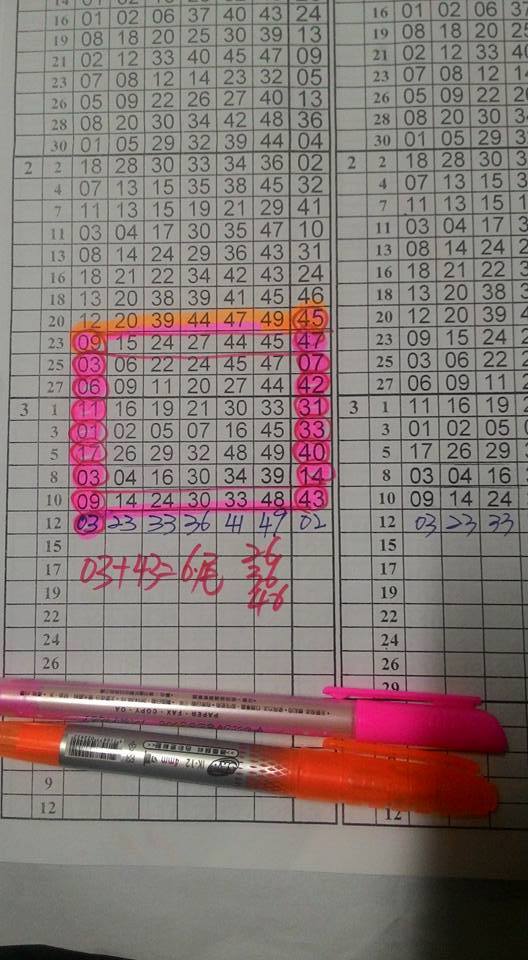 16 01 02 06 37 40 43 24
19 08 18 20 25 30 39 13
21 02 12 33 40 45 47 09
23 07 08 12 14 23 32 05
26 05 09 22 26 27 40 13
28 08 20 30 34 42 48 36
30 01 05 29 32 39 44 04
2 2 18 28 30 33 34 36 02
4 07 13 15 35 38 45 32
7 11 13 15 19 21 29 41
11 03 04 17 30 35 47 10
13 08 14 24 29 36 43 31
16 18 21 22 34 42 43 24
18 13 20 38 39 41 45 46
20 12 20 39 44 47 49 45
23 09 15 24 27 44 45 47
25 03 06 22 24 45 47 07
27 06 09 11 20 27 44 42
3 1 11 16 19 21 30 33 31
3 01 02 05 07 16 45 33
5 17 26 29 32 48 49 40
8 03 04 16 30 34 39 14
10 09 14 24 30 33 48 43
12 03 23 33 36 41 49 02
15
17
19
22
24
26
03+43=6尾
26
36
46
9
12
16 01 02 06 37
19 08 18 20 25
21 02 12 33
23 07 08 12
26 05 09 22
28 08 20 30
30 01 05 29
2 2 18 28 30
4 07 13 15
7 11 13 15
11 03 04 17
13 08 14 24
16 18 21 22
18 13 20 38
20 12 20 39
23 09 15 24
25 03 06 22
27 06 09 11
3 1 11 16 19
3 01 02 05
5 17 26 29
8 03 04 16
10 09 14 24
12 03 23 33
15
17
19
22
24
26
29
12
PAPER・FAX・COPY・OA
IK-12 4mm